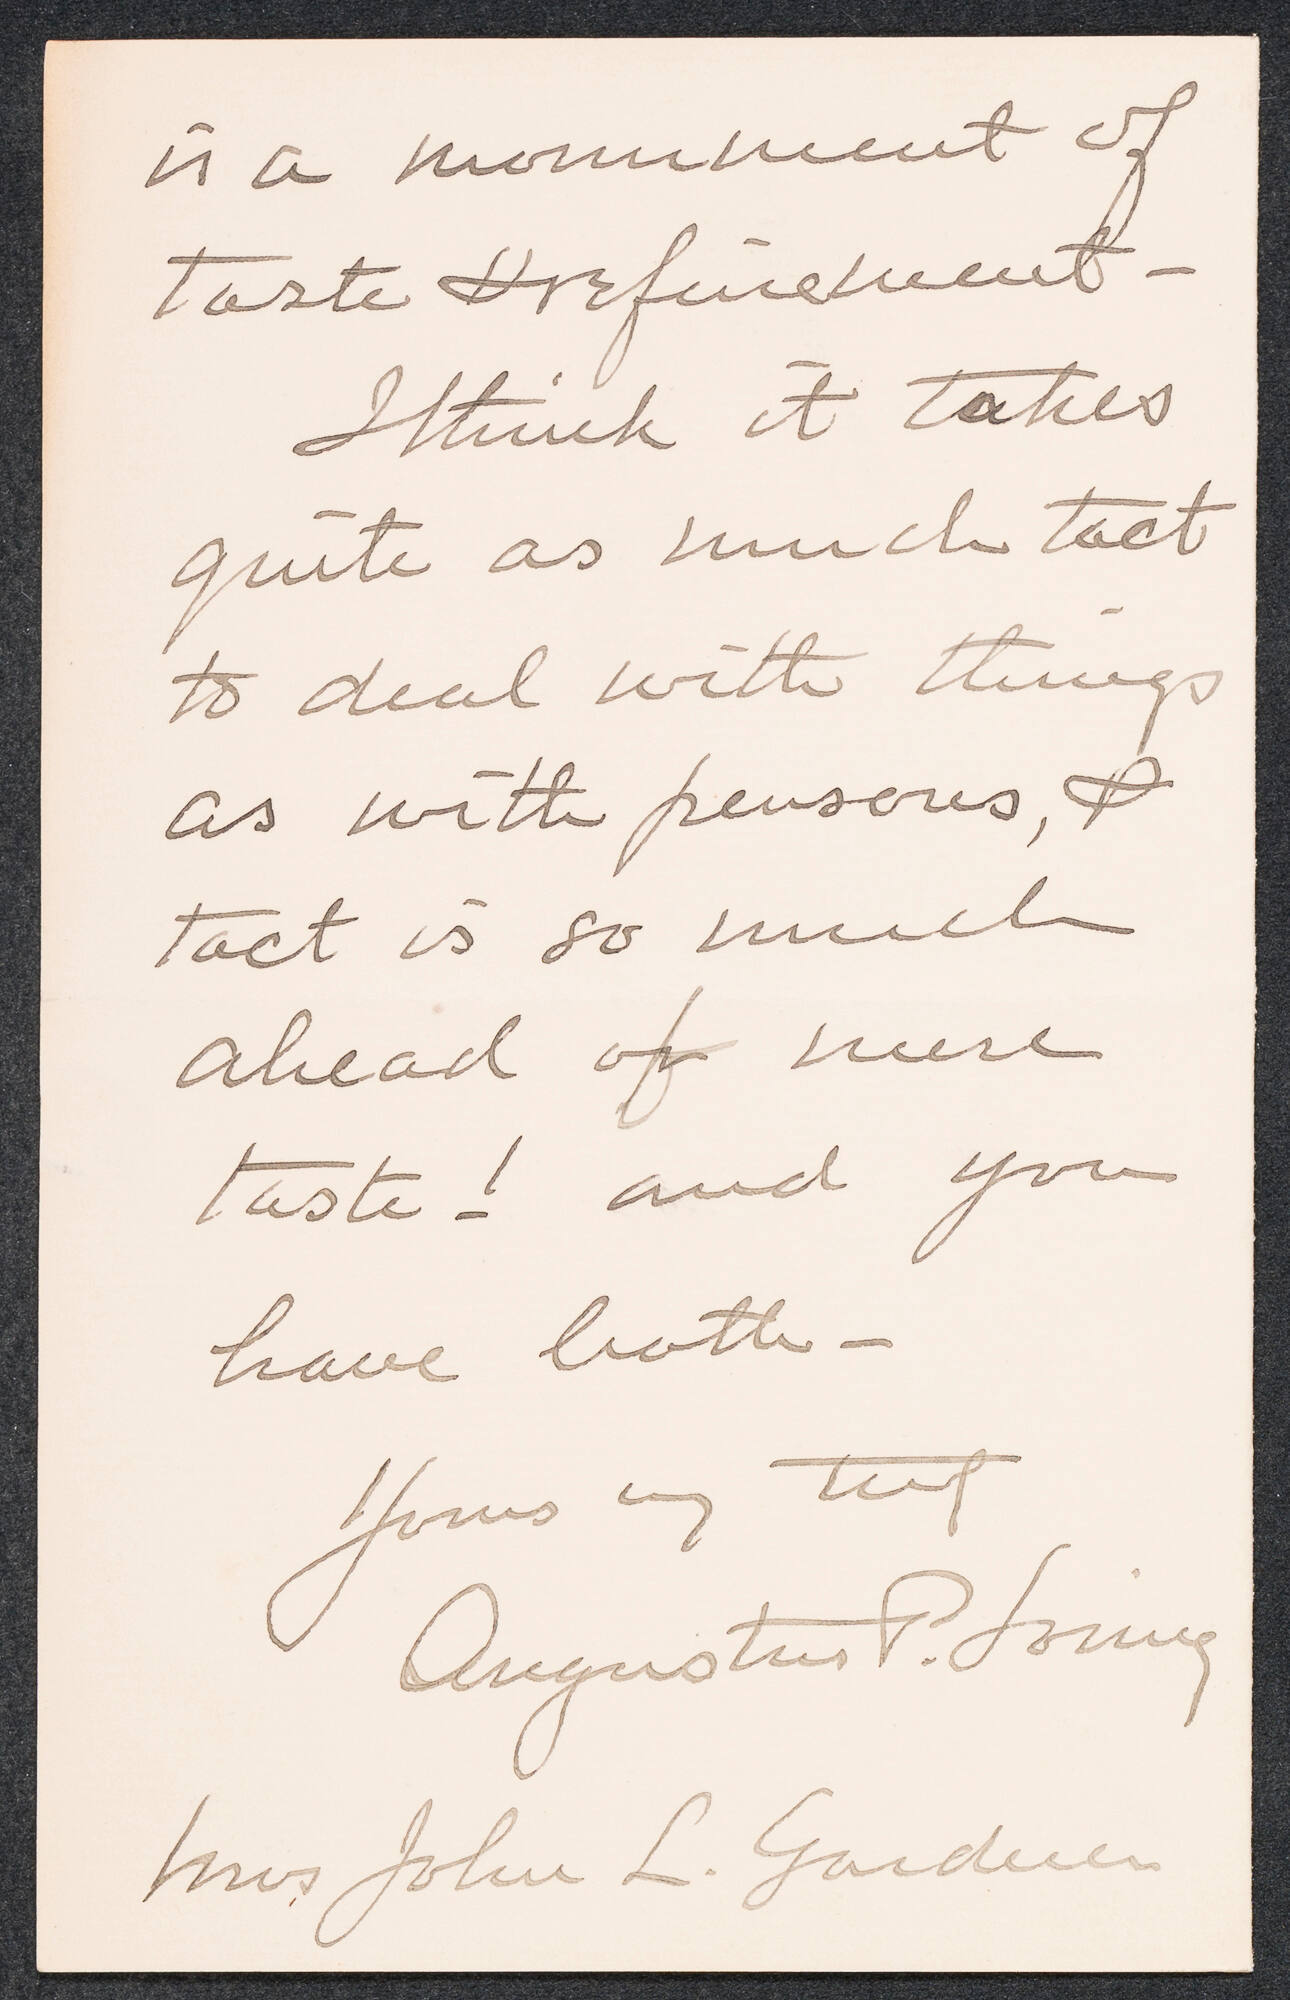 is a monument of
taste & refinement -
I think it takes
quite as much tact
to deal with things
as with persons, &
tact is so much
ahead of mere
taste! and you
have both -
Yours vy truly
Augustus P. Loring
Mrs John L. Gardner